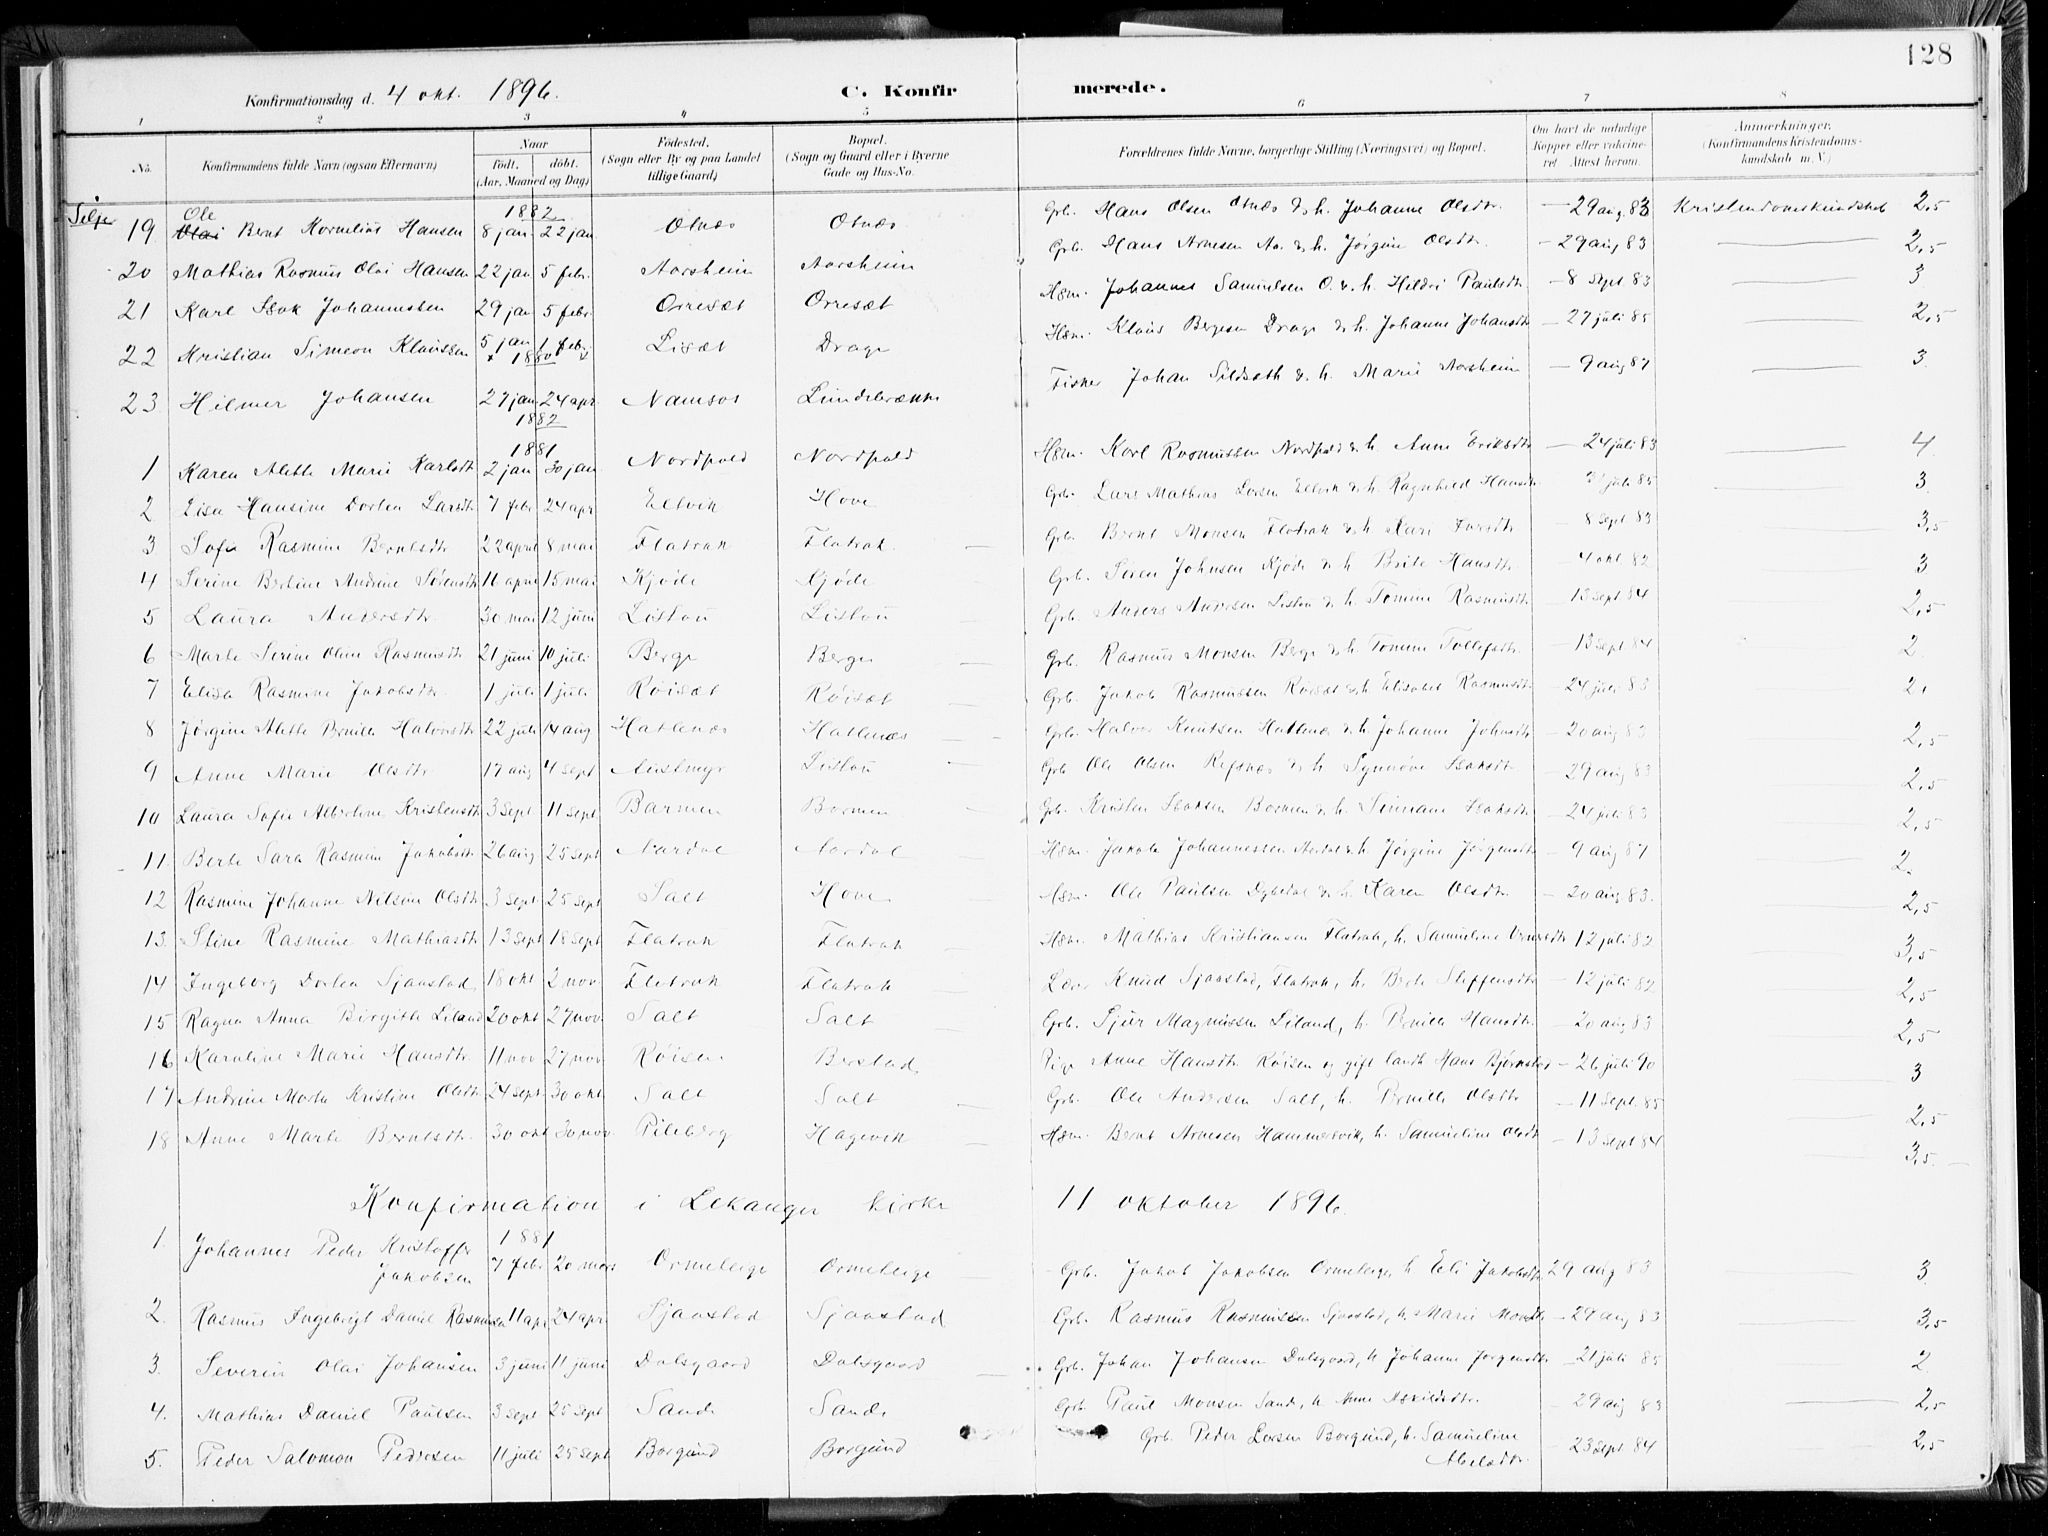 128
Konfirmationsdag d. 4 okt. 1896. C. Konfirmerede.
1 2 3 4 5 6 7 8
No. Konfirmandens fulde Navn (ogsaa Efternavn) Naar Födt. döbt. (Aar, Maaned og Dag) Födested. (Sogn eller By og paa Landet tillige Gaard) Bopæl. (Sogn og Gaard eller i Byerne Gade og Hus-No. Forældrenes fulde Navne, borgerlige Stilling (Næringsvei) og Bopæl. Om havt de naturlige Kopper eller vakcineret Attest herom. Anmærkninger. (Konfirmandens Kristendomskundskab m. V.)
Selje
1882
19 Ole Bernt Kornelius Hansen 8 jan. 22 jan. Otnæs Otnæs Grb. Hans Olsen Otnæs & h. Johanne Olsdtr. — 29 aug 83 Kristendomskundskab 2,5
20 Mathias Rasmus Olai Hansen 22 jan 5 febr. Aarsheim Aarsheim Grb. Hans Arnesen Aa. & h. Jørgine Olsdtr. — 29 aug 83 2,5
21 Karl Isak Johannessen 29 jan 5 febr. Orresæt Orresæt Hsm. Johannes Samuelsen O. & h. Heldri Paulsdtr — 8 sept 83 3
22 Kristian Simeon Klaussen 5 jan 1 febr. Lisæt Drage Hsm. Klaus Bergesen Drage & h. Johanne Johansdtr — 27 juli 85 2,5
1880
23 Hilmer Johansen 27 jan. 24 apr. Namsos Lundebrække Fisker Johan Sildseth & h. Marie Aarsheim — 9 aug 87 3
1882
1881
1 Karen Alette Marie Karlsdtr 2 jan 30 jan. Nordpold Nordpold Hsm. Karl Rasmussen Nordpold & h. Anne Eriksdtr — 24 juli 83 4
2 Lisa Hansine Dortea Larsdtr 7 febr 24 apr Eltvik Hove Grb. Lars Mathias Larsen Eltvik & h. Ragnhild Hansdtr. 31 juli 85 3
3 Sofie Rasmine Berntsdtr 22 april 8 mai Flatrak Flatrak Grb. Bernt Monsen Flatrak & h. Kari — 8 sept 83 3,5
4 Serine Bertine Andrine Sørensdtr 11 april 15 mai Kjøde Kjøde Grb. Søren Johnsen Kjøde & h. Brite Hansdtr — 4 okt. 82 3
5 Laura Andersdtr. 30 mai 12 juni Listou Listou Grb. Anders Andersen Listou & h. Tomine Rasmusdtr — 13 sept 84 2,5
6 Marte Serine Oline Rasmusdtr 21 juni 10 juli Berge Berge Grb. Rasmus Monsen Berge & h. Tomine Tollefsdtr. — 13 sept 84 2
7 Elisa Rasmine Jakobsdtr. 1 juli 1 juli Røisæt Røisæt Grb. Jakob Rasmussen Røisæt & h. Elisabet Rasmusdtr — 24 juli 83 2
8 Jørgine Alette Pernille Halvorsdtr 22 juli 14 aug Hatlenæs Hatlenæs Grb. Halvor Knutsen Hatlenæs & h. Johanne Johnsdtr — 20 aug 83 2,5
9 Anne Marie Olsdtr 17 aug 4 sept Austmyr Listou Grb Ole Olsen Refsnæs & h Synnøve Isaksdtr — 29 aug 83 2,5
10 Laura Sofie Albertine Kristensdtr 3 sept 11 sept Barmen Barmen Grb. Kristen Isaksen Barmen & h. Isaksdtr — 24 juli 83 2,5
11. Berte Sara Rasmine Jakobsdtr 26 aug 25 sept Nardal Nardal Hsm. Jakob Johannessen Nardal & h. Jørgine Jørgensdtr — 9 aug 87 2.
12 Rasmine Johanne Nilsine Olsdtr 3 sept 25 sept Salt Hove Hsm. Ole Paulsen Dybedal & h. Karen Olsdtr. — 20 aug 83. 2,5
13. Stine Rasmine Mathiasdtr 13 sept 18 sept Flatrak Flatrak Hsm. Mathias Kristiansen Flatrak, h. Samueline — 12 juli 82 3,5
14 Ingeborg Dortea Sjaastad 18 okt 2 nov Flatrak Flatrak Lær Knud Sjaastad, Flatrak, h. Berte Steffensdtr — 12 juli 82 2,5
15 Ragna Anna Birgitta Liland 20 okt 27 nov. Salt Salt Grb. Sjur Magnussen Liland, h. Pernille Hansdtr. — 20 aug 83 2,5
16 Karoline Marie Hansdtr 11 nov 27 nov Røisen Berstad Pige Anne Hansdtr Røisen og gift landh Hans Bjørnstad — 26 juli 90 3
17 Andrine Marta Kristine Olsdtr 24 sept 30 okt. Salt Salt Grb. Ole Andersen Salt, h. Pernille Olsdtr — 11 sept. 85 2,5
18 Anne Marte Berntsdtr. 30 okt 30 nov Pileberg Hagevik Hsm. Bernt Arnesen Hammersvik, h. Samueline Olsdtr — 13 sept 84 3,5.
Konfirmation i Lekanger kirke 11 oktober 1896.
1881
1. Johannes Peder Kristoffer Jakobsen 7 febr 20 mars Ormeberge Ormeberge Grb. Jakob Jakobsen Ormeberge, h Eli Jakobsdtr 29 aug 83 3
2. Rasmus Ingebrigt Daniel Rasmussen 11 apr 24 apr. Sjaastad Sjaastad Grb. Rasmus Rasmussen Sjaastad, h. Marie Monsdtr — 29 aug 83 3,5
3. Severin Olai Johansen 3 juni 11 juni Dalsgaard Dalsgaard Grb. Johan Johansen Dalsgaard, h Johanne Jørgensdtr — 21 juli 85 2
4. Mathias Daniel Paulsen 3 sept 25 sept Sande Sande Grb Paul Monsen Sande, h Anne Askildsdtr. — 29 aug 83 2,5
5. Peder Salomon Pedersen 11 juli 25 sept Borgund Borgund Grb. Peder Larsen Borgund, h. Samueline Abelsdtr. — 23 sept 84 2,5